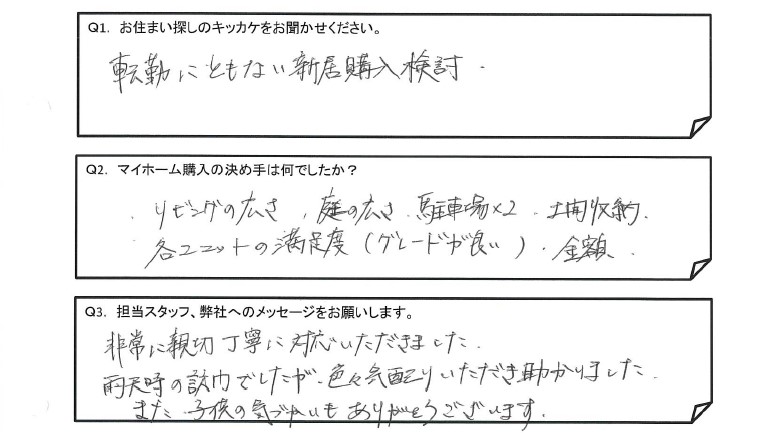 Q1. お住まい探しのキッカケをお聞かせください。
転勤にともない新居購入検討.
Q2. マイホーム購入の決め手は何でしたか？
・リビングの広さ ・庭の広さ ・駐車場×2 ・土間収納.
各ユニットの満足度（グレードが良い） ・金額.
Q3. 担当スタッフ、弊社へのメッセージをお願いします。
非常に親切丁寧に対応いただきました.
雨天時の訪内でしたが、色々気配りいただき助かりました.
また、子供の気づかいもありがとうございます.